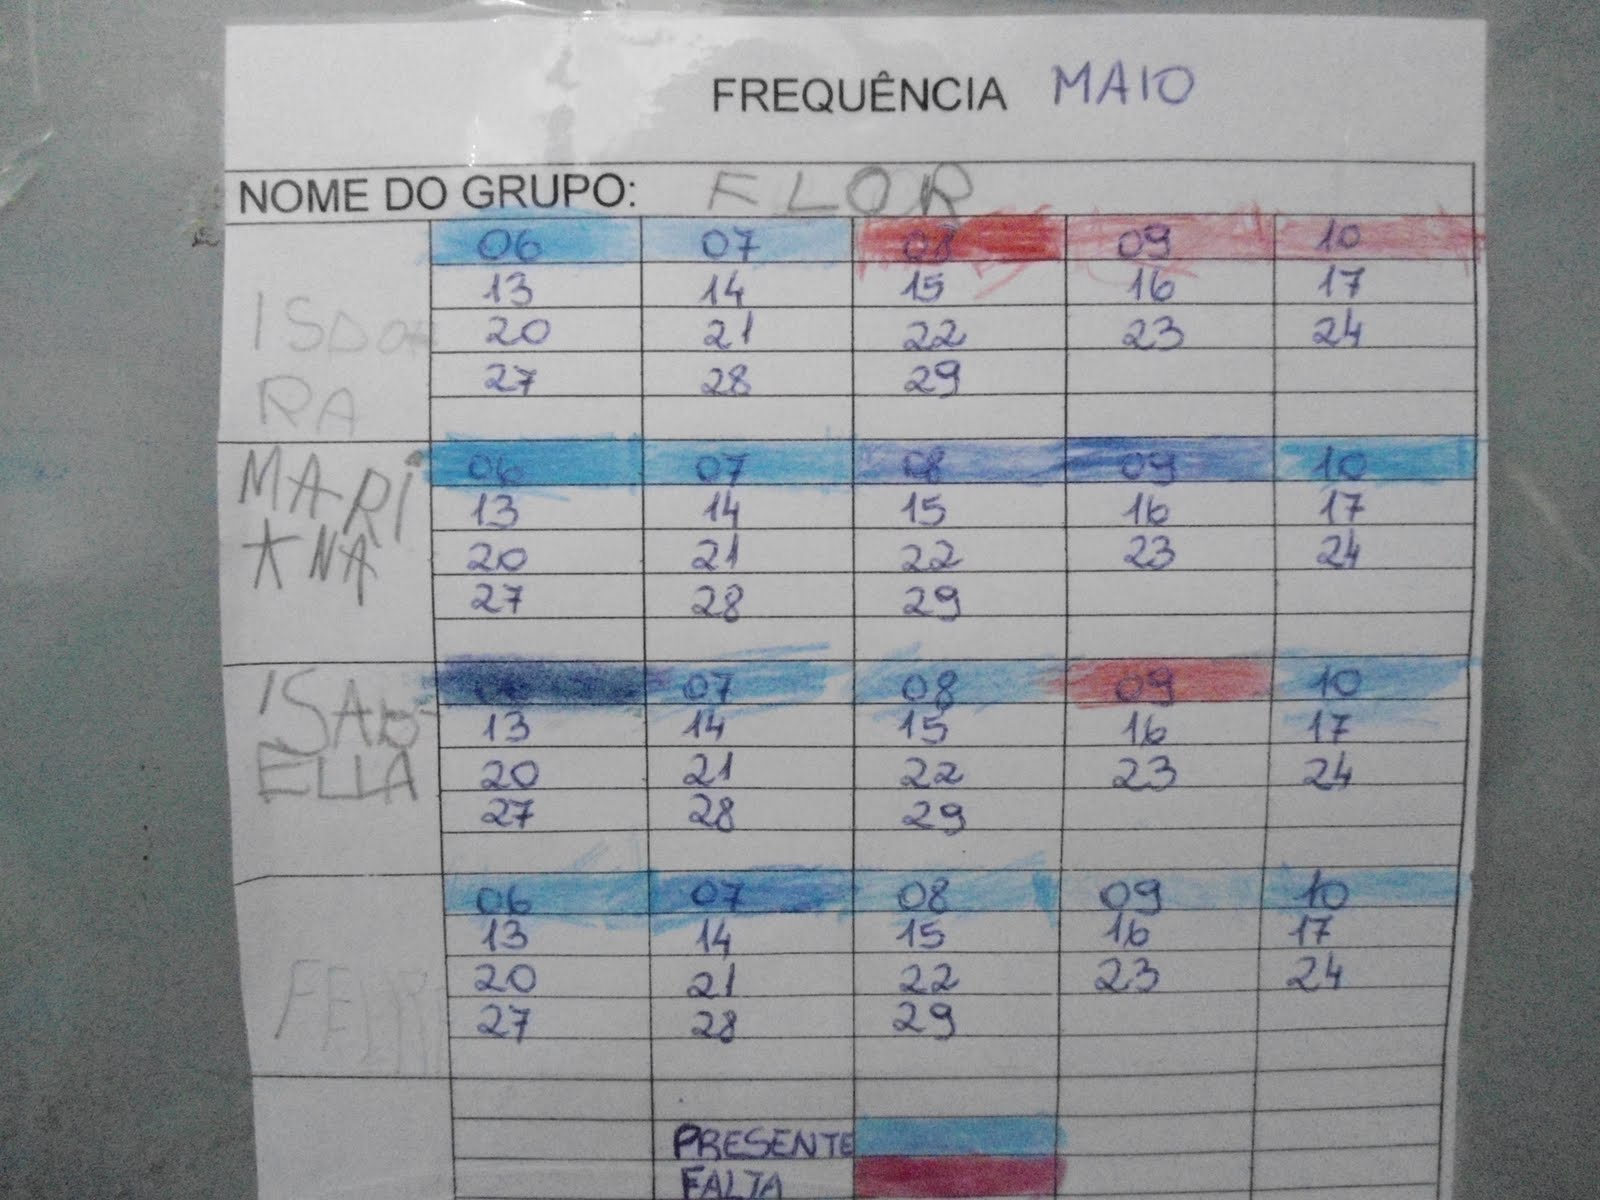 FREQUÊNCIA MAIO
NOME DO GRUPO: FLOR
06 07 08 09 10
13 14 15 16 17
ISDOA 20 21 22 23 24
27 28 29
RA
MARI 06 07 08 09 10
13 14 15 16 17
ANA 20 21 22 23 24
27 28 29
ISAB- 06 07 08 09 10
13 14 15 16 17
ELLA 20 21 22 23 24
27 28 29
06 07 08 09 10
13 14 15 16 17
20 21 22 23 24
27 28 29
PRESENTE
FALTA